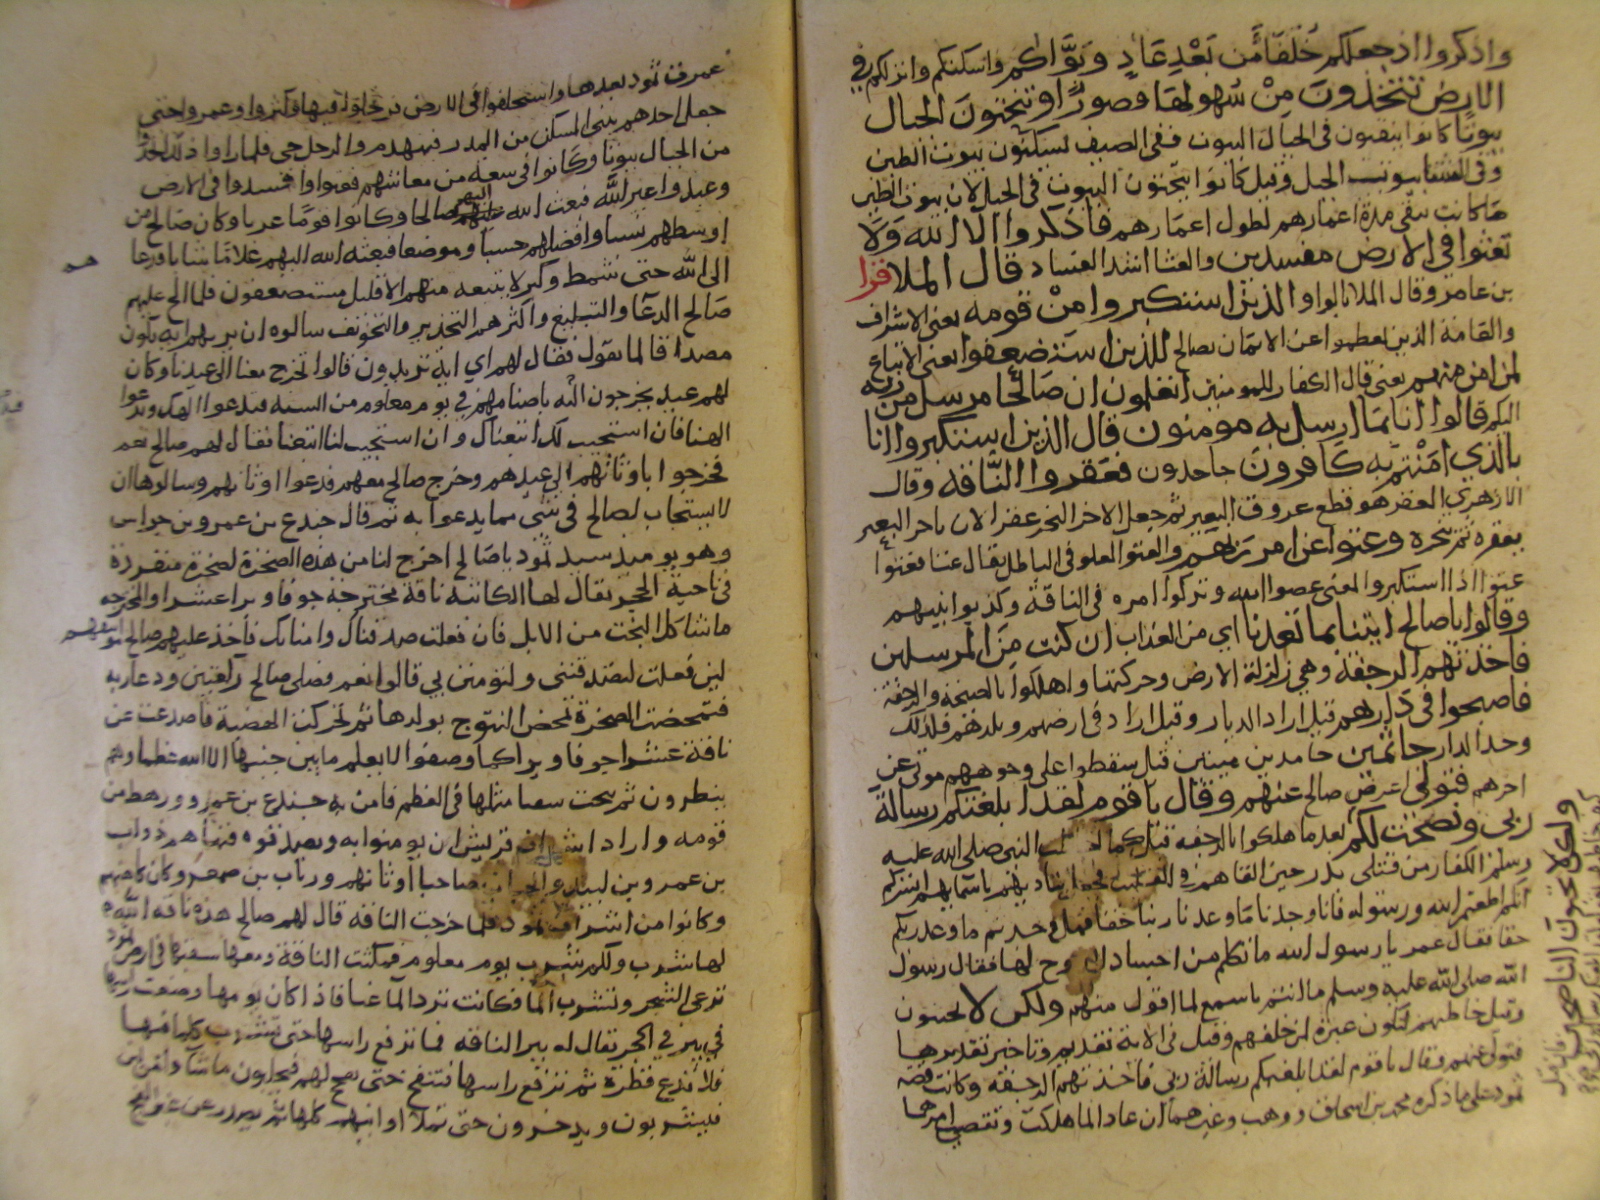 واذكروا اذ جعلكم خلفا من بعد عاد وبوّاكم واسكنكم وانزلكم في
الارض تتخذون من سهولها قصورا وتنحتون الجبال
بيوتا كانوا ينقبون في الجبال البيوت ففي الصيف يسكنون بيوت الطين
وفي الشتا بيوت الجبل وقيل كانوا ينحتون البيوت في الجبل لان بيوت الطين
ما كانت تبقى مدة اعمارهم لطول اعمارهم فاذكروا آلا الله ولا
تعثوا في الارض مفسدين والعثا اشد الفساد قال الملا قرا
بن عامر وقال الملا بالواو الذين استكبروا من قومه يعني الاشراف
والقادة الذين تعظموا عن الايمان بصالح للذين استضعفوا يعني الاتباع
لمن امن منهم يعني قال الكفار للمومنين اتعلمون ان صالحا مرسل من ربه
اليكم قالوا انا بما ارسل به مومنون قال الذين استكبروا انا
بالذي امنتم به كافرون جاحدون فعقروا الناقة وقال
الازهري العقر هو قطع عروق البعير ثم جعل الاخر النحر عقرا لان ناحر البعير
يعقره ثم ينحره وعتوا عن امر ربهم والعتو الغلو في الباطل يقال عتا يعتوا
عتوا اذا استكبر والمعنى عصوا الله وتركوا امره في الناقة وكذبوا نبيهم
وقالوا يا صالح ايتنا بما تعدنا اي من العذاب ان كنت من المرسلين
فاخذتهم الرجفة وهي زلزلة الارض وحركتها واهلكوا بالصيحة والرجفة
فاصبحوا في دارهم قيل اراد الديار وقيل اراد في ارضهم وبلدتهم فلذلك
وحد الدار جاثمين خامدين ميتين قيل سقطوا على وجوههم موتى عن
اخرهم فتولى اعرض صالح عنهم وقال يا قوم لقد ابلغتكم رسالة
ربي ونصحت لكم بعد ما هلكوا بالرجفة قيل كما خاطب النبي صلى الله عليه
وسلم الكفار من قتلى بدر حين القاهم في القليب فجعل يناديهم باسمايهم ايسركم
انكم اطعتم الله ورسوله فانا وجدنا ما وعدنا ربنا حقا فهل وجدتم ما وعد ربكم
حقا فقال عمر يا رسول الله ما تكلم من اجساد لا روح لها فقال رسول
الله صلى الله عليه وسلم ما انتم باسمع لما اقول منهم ولكن لا يجيبون
وقيل خاطبهم لتكون عبرة لمن خلفهم وقيل في الاية تقديم وتاخير تقديرها
فتولى عنهم فقال يا قوم لقد ابلغتكم رسالة ربي فاخذتهم الرجفة وكانت قصة
ثمود على ما ذكره محمد بن اسحاق ووهب وغيرهما ان عادا لما هلكت وتقضى امرها
ولكن لا تحبون الناصحين فان قيل
عمرت ثمود بعدها واستخلفوا في الارض فدخلوا فيها فكثروا وعمروا حتى
جعل احدهم يبني المسكن من المدر فينهدم والرجل حي فلما راوا ذلك اتخذوا
من الجبال بيوتا وكانوا في سعة من معاشهم فعتوا وافسدوا في الارض
وعبدوا غير الله فبعث الله اليهم صالحا وكانوا قوما عربا وكان صالح من
اوسطهم نسبا وافضلهم حسبا وموضعا فبعثه الله اليهم غلاما شابا فدعا
هم
الى الله حتى شمط وكبر لا يتبعه منهم الا قليل مستضعفون فلما الح عليهم
صالح الدعا والتبليغ واكثرهم التحذير والتخويف سالوه ان يريهم اية تكون
مصداقا لما يقول فقال لهم اي اية تريدون قالوا تخرج معنا الى عيدنا وكان
لهم عيد يخرجون اليه باصنامهم في يوم معلوم من السنة فتدعوا الهك وندعوا
الهتنا فان استجيب لك اتبعناك وان استجيب لنا اتبعتنا فقال لهم صالح نعم
فخرجوا باوثانهم الى عيدهم وخرج صالح معهم فدعوا اوثانهم وسالوها ان
لا يستجاب لصالح في شي مما يدعوا به ثم قال جندع بن عمرو بن جواس
وهو يوميذ سيد ثمود يا صالح اخرج لنا من هذه الصخرة لصخرة منفردة
في ناحية الحجر يقال لها الكاثبة ناقة مخترجة جوفا وبرا عشرا والمخترجة
ما شاكل البخت من الابل فان فعلت صدقناك وامنا بك فاخذ عليهم صالح مواثيقهم
لين فعلت لتصدقنني ولتومنن بي قالوا نعم فصلى صالح ركعتين ودعا ربه
فتمخضت الصخرة تمخض النتوج بولدها ثم تحركت الهضبة فانصدعت عن
ناقة عشرا جوفا وبرا كما وصفوا لا يعلم ما بين جنبيها الا الله عظما وهم
ينظرون ثم نتجت سقبا مثلها في العظم فامن به جندع بن عمرو ورهط من
قومه واراد اشراف ان يومنوا به ويصدقوه فنهاهم ذواب
بن عمرو بن لبيد والحباب صاحبا اوثانهم ورباب بن صمعر وكان كاهنهم
وكانوا من اشراف ثمود فلما خرجت الناقة قال لهم صالح هذه ناقة الله
لها شرب ولكم شرب يوم معلوم فمكثت الناقة ومعها سقبها في ارض ثمود
ترعى الشجر وتشرب الما فكانت ترد الما غبا فاذا كان يومها وضعت راسها
في بير في الحجر يقال له بير الناقة فما ترفع راسها حتى تشرب كلما فيها
فلا تدع قطرة ثم ترفع راسها فتفجج حتى تفجج لهم فيحلبون ما شاوا من لبن
فيشربون ويدخرون حتى تملا اوانيهم كلها ثم تصدر عن غير الفج